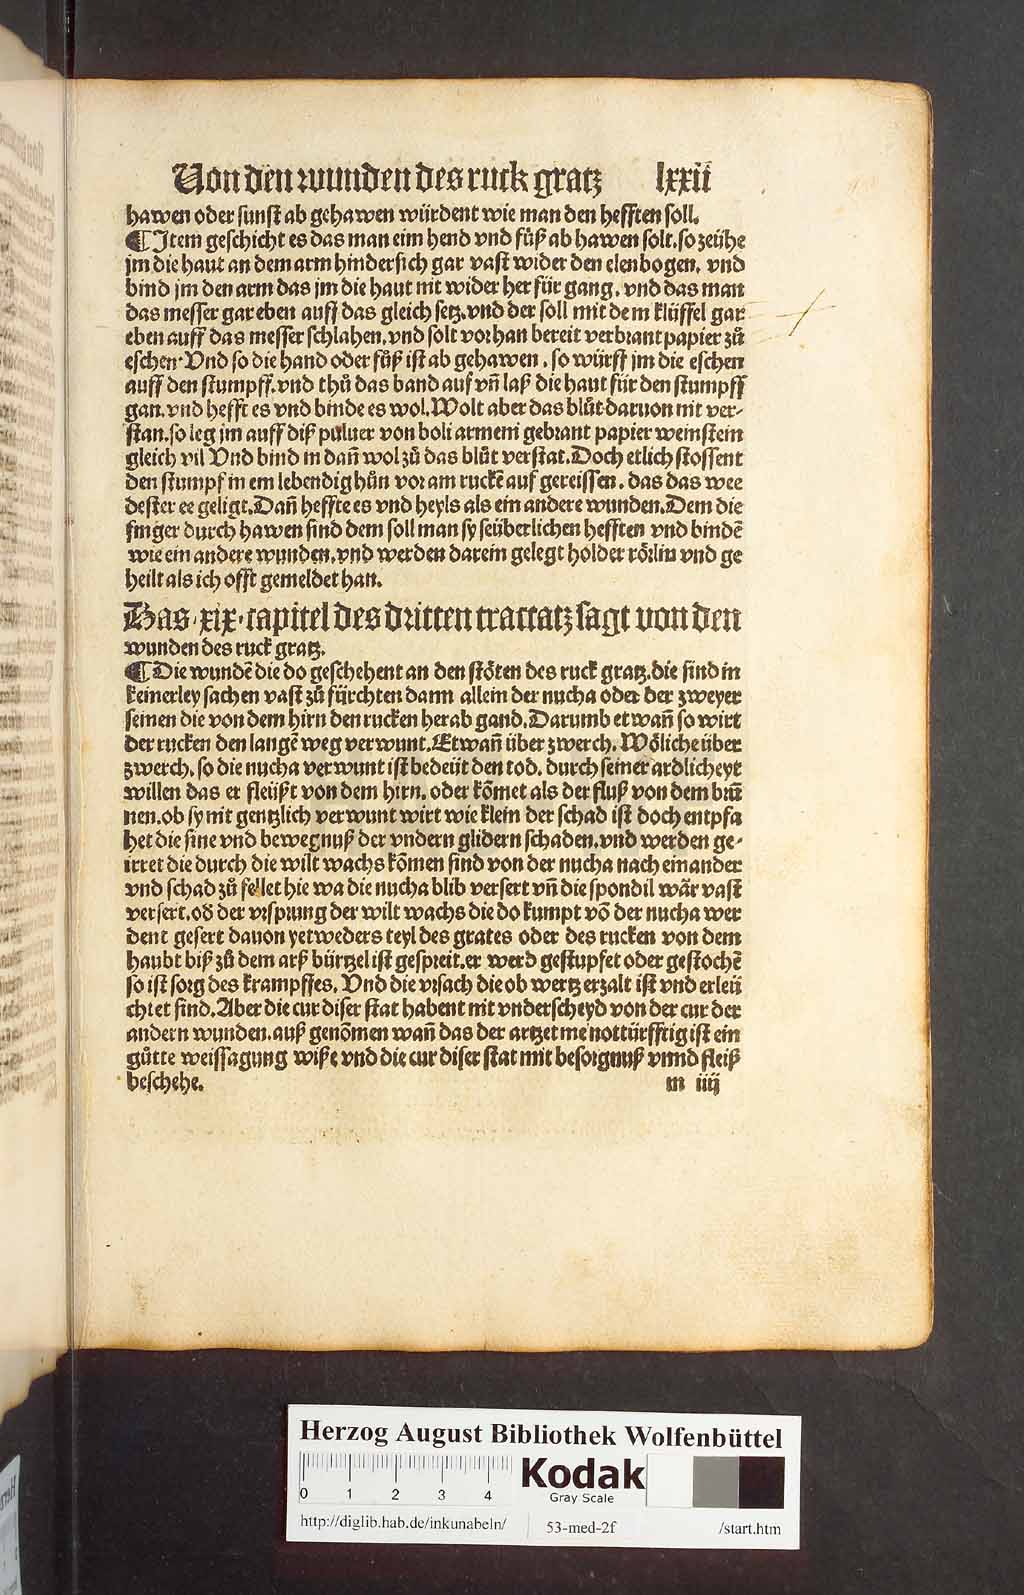 Von den wunden des ruck gratz lxxii
hawen oder sunst ab gehawen würdent wie man den hefften soll.
¶ Item geschicht es das man eim hend vnd füß ab hawen solt. so zeühe
jm die haut an dem arm hindersich gar vast wider den elenbogen. vnd
bind jm den arm das jm die haut nit wider her für gang. vnd das man
das messer gar eben auff das gleich setz. vnd der soll mit dem klüffel gar
eben auff das messer schlahen. vnd solt vorhan bereit verbrant papier zů
eschen· Vnd so die hand oder fůß ist ab gehawen. so würff jm die eschen
auff den stumpff. vnd thů das band auf vñ laß die haut für den stumpff
gan. vnd hefft es vnd binde es wol. Wolt aber das blůt daruon nit ver-
stan. so leg jm auff diß puluer von boli armeni gebrant papier weinstein
gleich vil Vnd bind in dañ wol zů das blůt verstat. Doch etlich stossent
den stumpf in em lebendig hůn vor am ruckē auf gereissen. das das wee
dester ee geligt. Dañ heffte es vnd heyls als ein andere wunden. Dem die
finger durch hawen sind dem soll man sy seüberlichen hefften vnd bindē
wie ein andere wunden. vnd werden darein gelegt holder rörlin vnd ge
heilt als ich offt gemeldet han.
Das ·xix· capitel des dritten tractatz sagt von den
wunden des ruck gratz.
¶ Die wundē die do geschehent an den stöten des ruck gratz. die sind in
keinerley sachen vast zů fürchten dann allein der nucha oder der zweyer
seinen die von dem hirn den rucken herab gand. Darumb etwañ so wirt
der rucken den langē weg verwunt. Etwañ über zwerch. Wöliche über
zwerch. so die nucha verwunt ist bedeüt den tod. durch seiner ardlicheyt
willen das er fleüßt von dem hirn. oder kōmet als der fluß von dem brū
nen. ob sy nit gentzlich verwunt wirt wie klein der schad ist doch entpfa
het die sine vnd bewegnuß der vndern glidern schaden. vnd werden ge-
irret die durch die wilt wachs kōmen sind von der nucha nach einander
vnd schad zů fellet hie wa die nucha blib versert vñ die spondil wār vast
versert. od der vrsprung der wilt wachs die do kumpt vō der nucha wer
dent gesert dauon yetweders teyl des grates oder des rucken von dem
haubt biß zů dem arß bürtzel ist gespreit. er werd gestupfet oder gestochē
so ist sorg des krampffes. Vnd die vrsach die ob wertz erzalt ist vnd erleü
chtet sind. Aber die cur diser stat habent nit vnderscheyd von der cur der
andern wunden. auß genōmen wañ das der artzet me nottürfftig ist ein
gůtte weissagung wiße vnd die cur diser stat mit besorgnuß vnnd fleiß
beschehe. m iiij
Herzog August Bibliothek Wolfenbüttel
0 1 2 3 4
Kodak
Gray Scale
http://diglib.hab.de/inkunabeln/ 53-med-2f /start.htm